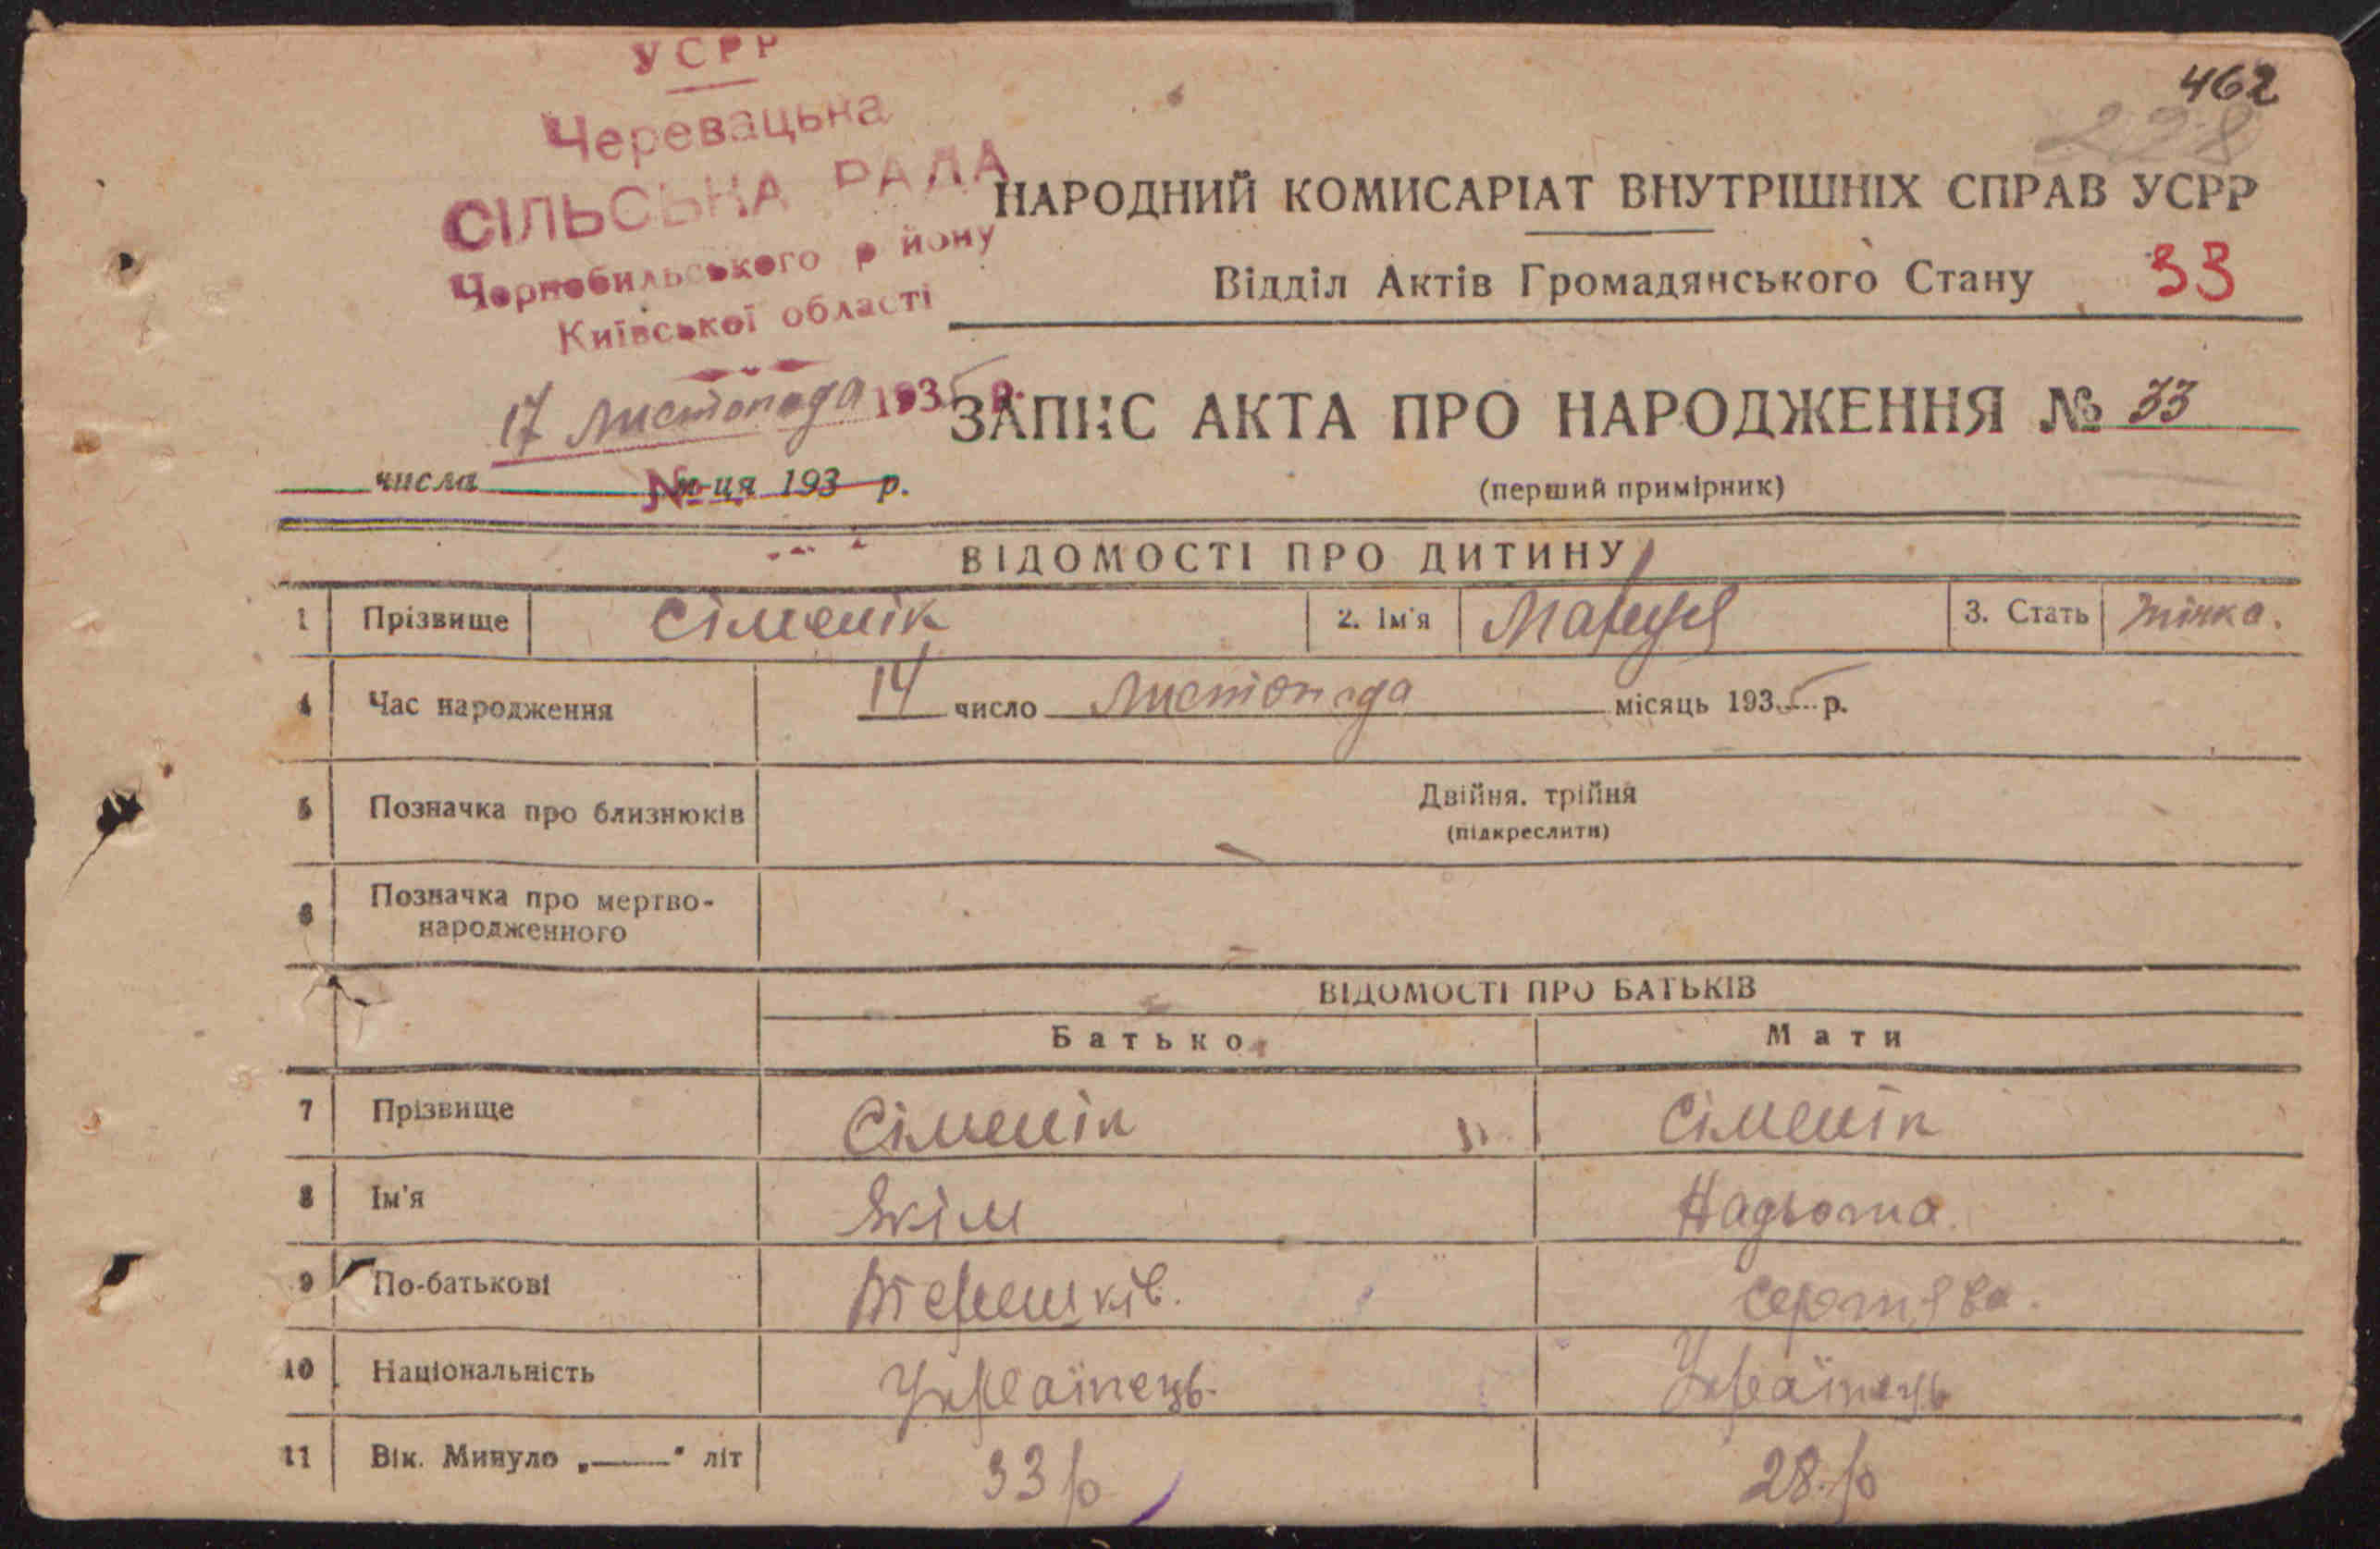 УСРР
462
228
Черевацьна
СІЛЬСЬНА РАДА
Чорнобильського району
Київської області
17 Листопада 1935 р.
НАРОДНИЙ КОМИСАРІАТ ВНУТРІШНІХ СПРАВ УСРР
Відділ Актів Громадянського Стану 33
ЗАПИС АКТА ПРО НАРОДЖЕННЯ № 33
числа м-ця 193 р.
№
(перший примірник)
ВІДОМОСТІ ПРО ДИТИНУ
1 Прізвище Сіменік 2. Ім'я Маруся 3. Стать жінка.
4 Час народження 14 число Листопада місяць 1935 р.
5 Позначка про близнюків Двійня, трійня
(підкреслити)
6 Позначка про мертво-
народженного
ВІДОМОСТІ ПРО БАТЬКІВ
Батько Мати
7 Прізвище Сіменік Сіменік
8 Ім'я Якім Надьожа.
9 По-батькові
10 Національність Українець. Українець
11 Вік. Минуло „—" літ 33 р 28. р